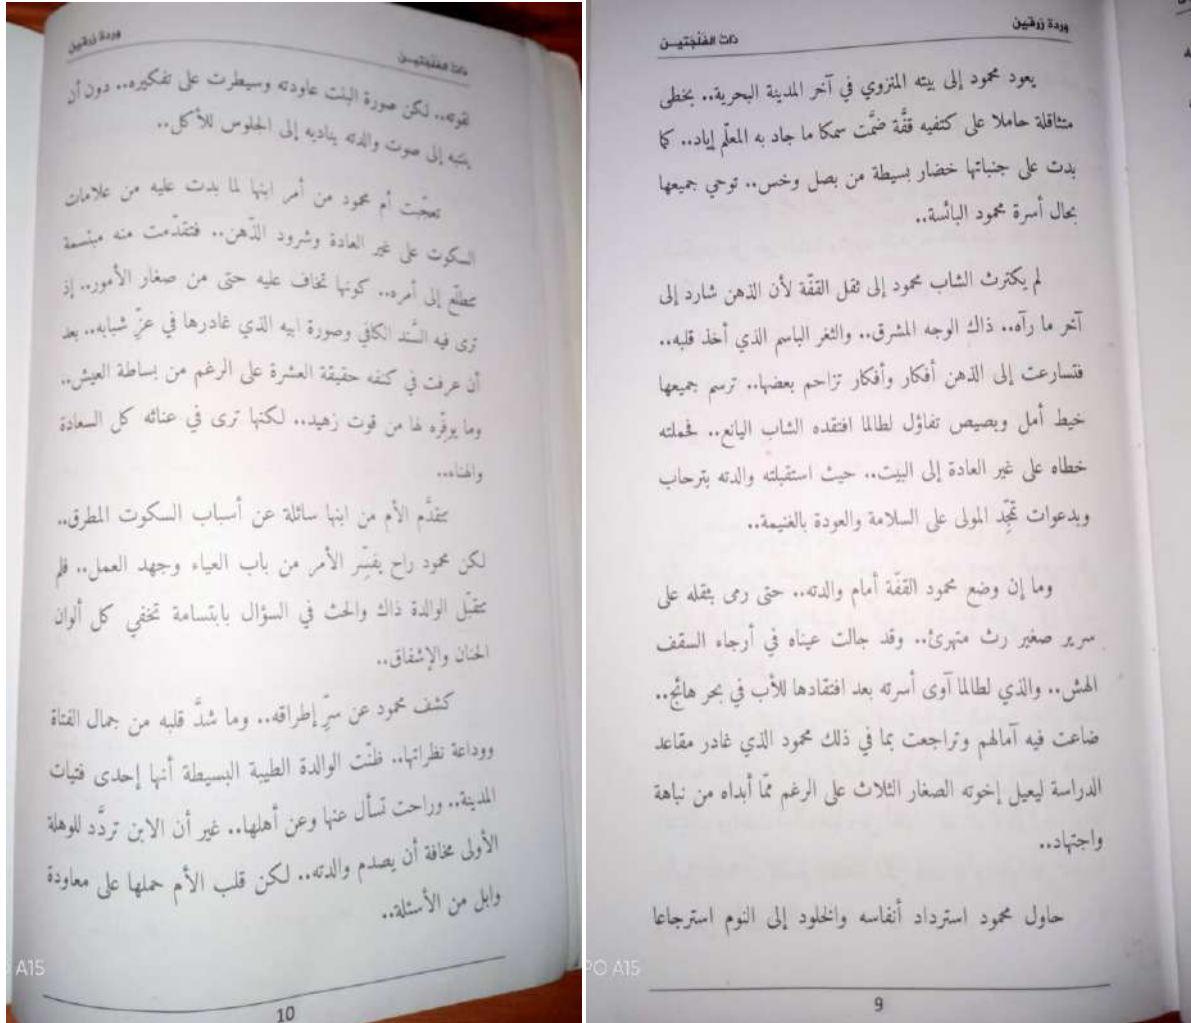 وردة زرقين
ذات الفلجتيـن
يعود محمود إلى بيته المنزوي في آخر المدينة البحرية.. بخطى
متثاقلة حاملا على كتفيه قفَّة ضمَّت سمكا ما جاد به المعلّم إياد.. كما
بدت على جنباتها خضار بسيطة من بصل وخس.. توحي جميعها
بحال أسرة محمود البائسة..
لم يكترث الشاب محمود إلى ثقل القفّة لأن الذهن شارد إلى
آخر ما رآه.. ذاك الوجه المشرق.. والثغر الباسم الذي أخذ قلبه..
فتسارعت إلى الذهن أفكار وأفكار تزاحم بعضها.. ترسم جميعها
خيط أمل وبصيص تفاؤل لطالما افتقده الشاب اليانع.. فحملته
خطاه على غير العادة إلى البيت.. حيث استقبلته والدته بترحاب
وبدعوات تمجّد المولى على السلامة والعودة بالغنيمة..
وما إن وضع محمود القفّة أمام والدته.. حتى رمى بثقله على
سرير صغير رث متهرئ.. وقد جالت عيناه في أرجاء السقف
الهش.. والذي لطالما آوى أسرته بعد افتقادها للأب في بحر هائج..
ضاعت فيه آمالهم وتراجعت بما في ذلك محمود الذي غادر مقاعد
الدراسة ليعيل إخوته الصغار الثلاث على الرغم ممّا أبداه من نباهة
واجتهاد..
حاول محمود استرداد أنفاسه والخلود إلى النوم استرجاعا
9
PO A15
وردة زرقين
ذات الفلجتيـن
لقوته.. لكن صورة البنت عاودته وسيطرت على تفكيره.. دون أن
ينتبه إلى صوت والدته يناديه إلى الجلوس للأكل..
تعجّبت أم محمود من أمر ابنها لما بدت عليه من علامات
السكوت على غير العادة وشرود الذّهن.. فتقدّمت منه مبتسمة
تتطلّع إلى أمره.. كونها تخاف عليه حتى من صغار الأمور.. إذ
ترى فيه السَّند الكافي وصورة ابيه الذي غادرها في عزّ شبابه.. بعد
أن عرفت في كنفه حقيقة العشرة على الرغم من بساطة العيش..
وما يوفّره لها من قوت زهيد.. لكنها ترى في عنائه كل السعادة
والهناء..
تتقدَّم الأم من ابنها سائلة عن أسباب السكوت المطرق..
لكن محمود راح يفسِّر الأمر من باب العياء وجهد العمل.. فلم
تتقبّل الوالدة ذاك والحث في السؤال بابتسامة تخفي كل ألوان
الحنان والإشفاق..
كشف محمود عن سرِّ إطراقه.. وما شدَّ قلبه من جمال الفتاة
ووداعة نظراتها.. ظنّت الوالدة الطيبة البسيطة أنها إحدى فتيات
المدينة.. وراحت تسأل عنها وعن أهلها.. غير أن الابن تردَّد للوهلة
الأولى مخافة أن يصدم والدته.. لكن قلب الأم حملها على معاودة
وابل من الأسئلة..
10
A15